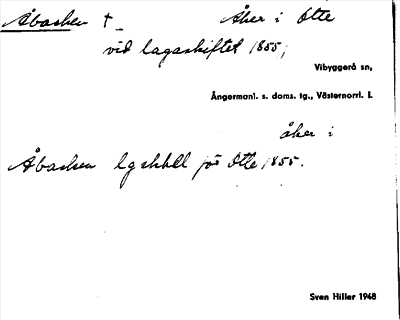 Åbacken † Åker i Otte
vid lagaskiftet 1855;
Vibyggerå sn,
Ångermanl. s. doms. tg., Västernorrl. l.
åker i
Åbacken lgskhll för Otte, 1855.
Sven Hiller 1948